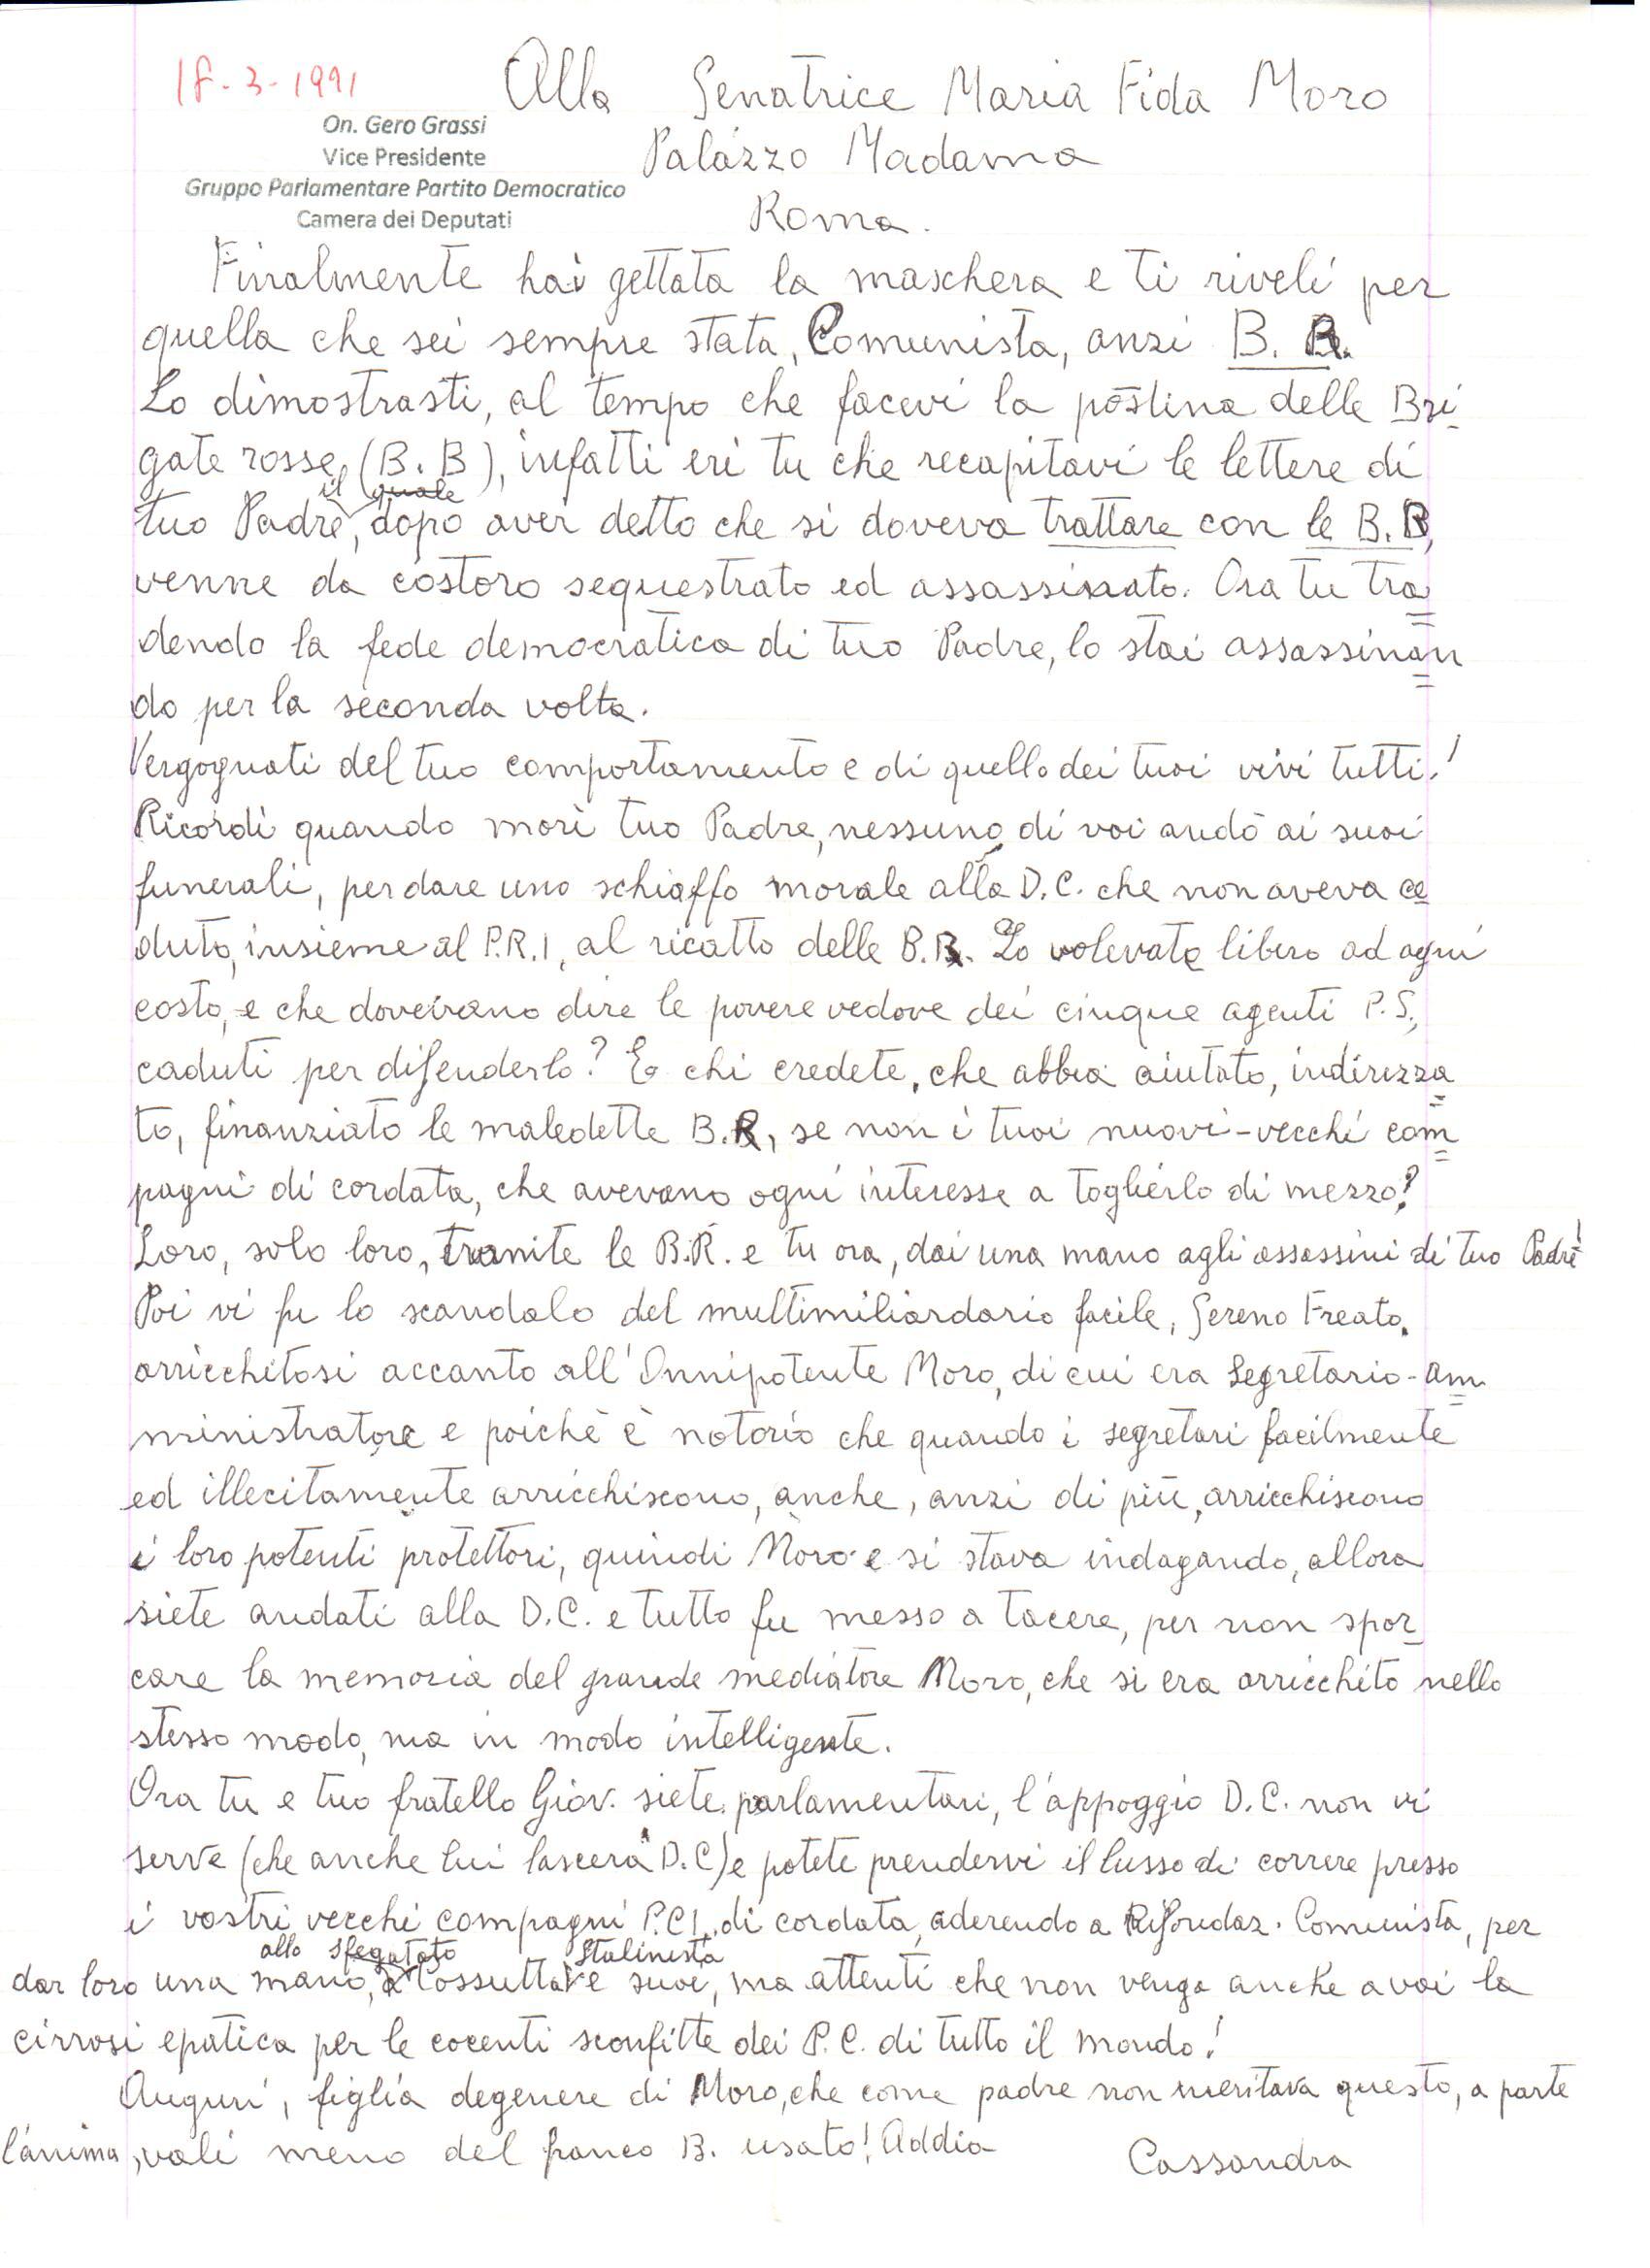 18-3-1991
Alla Senatrice Maria Fida Moro
On. Gero Grassi
Vice Presidente
Gruppo Parlamentare Partito Democratico
Camera dei Deputati
Palazzo Madama
Roma.
Finalmente hai gettata la maschera e ti riveli per
quella che sei sempre stata, Comunista, anzi B. R.
Lo dimostrasti, al tempo che facevi la postina delle Bri-
gate rosse, (B. B), infatti eri tu che recapitavi le lettere di
il quale
tuo Padre, dopo aver detto che si doveva trattare con le B. B,
venne da costoro sequestrato ed assassinato. Ora tu tra=
dendo la fede democratica di tuo Padre, lo stai assassinan=
do per la seconda volta.
Vergognati del tuo comportamento e di quello dei tuoi vivi tutti!
Ricordi quando morì tuo Padre, nessuno di voi andò ai suoi
funerali, per dare uno schiaffo morale alla D.C. che non aveva ce
duto, insieme al P.R.I, al ricatto delle B.R. Lo volevate libero ad ogni
costo, e che dovevano dire le povere vedove dei cinque agenti P.S.,
caduti per difenderlo? E chi credete, che abbia aiutato, indirizza=
to, finanziato le maledette B.R, se non i tuoi nuovi-vecchi com=
pagni di cordata, che avevano ogni interesse a toglierlo di mezzo?
Loro, solo loro, tramite le B.R. e tu ora, dai una mano agli assassini di tuo Padre!
Poi vi fu lo scandalo del multimiliardario facile, Sereno Freato.
arricchitosi accanto all'Onnipotente Moro, di cui era segretario-am=
ministratore e poichè è notorio che quando i segretari facilmente
ed illecitamente arricchiscono, anche, anzi di più, arricchiscono
i loro potenti protettori, quindi Moro e si stava indagando, allora
siete andati alla D.C. e tutto fu messo a tacere, per non spor
care la memoria del grande mediatore Moro, che si era arricchito nello
stesso modo, ma in modo intelligente.
Ora tu e tuo fratello Giov. siete parlamentari, l'appoggio D.C. non vi
serve (che anche lui lascerà D.C) e potete prendervi il lusso di correre presso
i vostri vecchi compagni P.C.I. di cordata, aderendo a Rifondaz. Comunista, per
allo sfegatato Stalinista
dar loro una mano, a Cossutta e suoi, ma attenti che non venga anche a voi la
cirrosi epatica per le cocenti sconfitte dei P.C. di tutto il mondo!
Auguri, figlia degenere di Moro, che come padre non meritava questo, a parte
l'anima, vali meno del franco B. usato! Addio
Cassandra